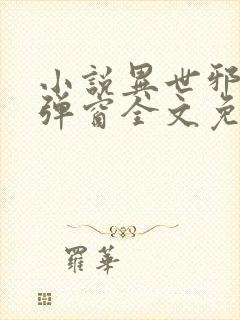 小說異世邪
彈窗全文免
羅華